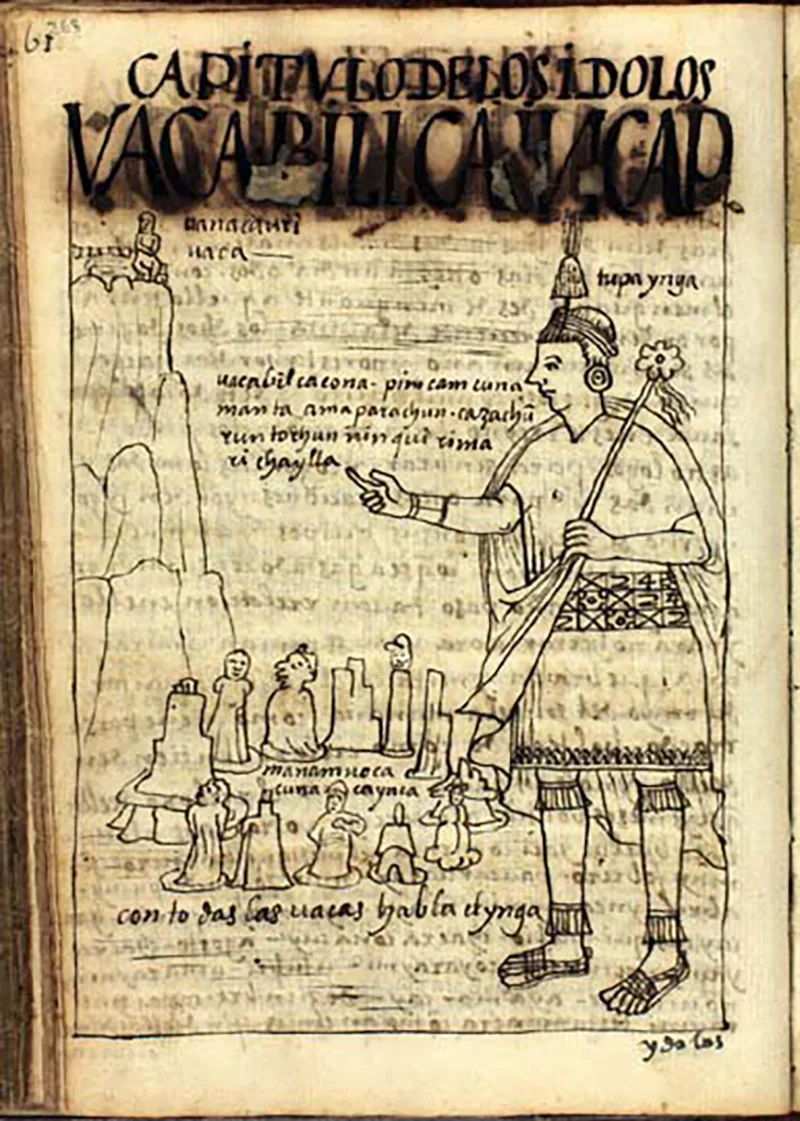 61
CAPITVLO DE LOS IDOLOS
VACA BILLCA INCAP
uanacauri
uaca
tupa ynga
uacabilcacona - pim camcuna
manta ama parachun - cazachū
runtochun ninqui rima
ri chaylla
manam noca
cuna caynca
con todas las uacas habla el ynga
ydolos